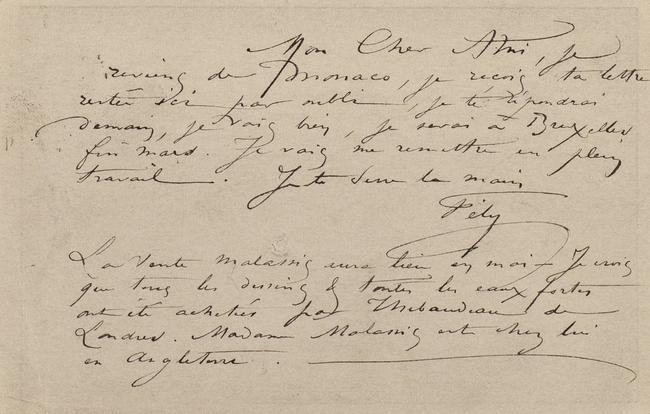 Mon Cher Ami, je
reviens de Monaco, je reçois ta lettre
restée ici par oubli, je te répondrai
demain, je vais bien, je serai à Bruxelles
fin mars. Je vais me remettre en plein
travail. Je te serre la main
Fély
La vente Malassis aura lieu en mai - Je crois
que tous les dessins & toutes les eaux fortes
ont été achetés par Thibaudeau de
Londres. Madame Malassis est chez lui
en Angleterre.